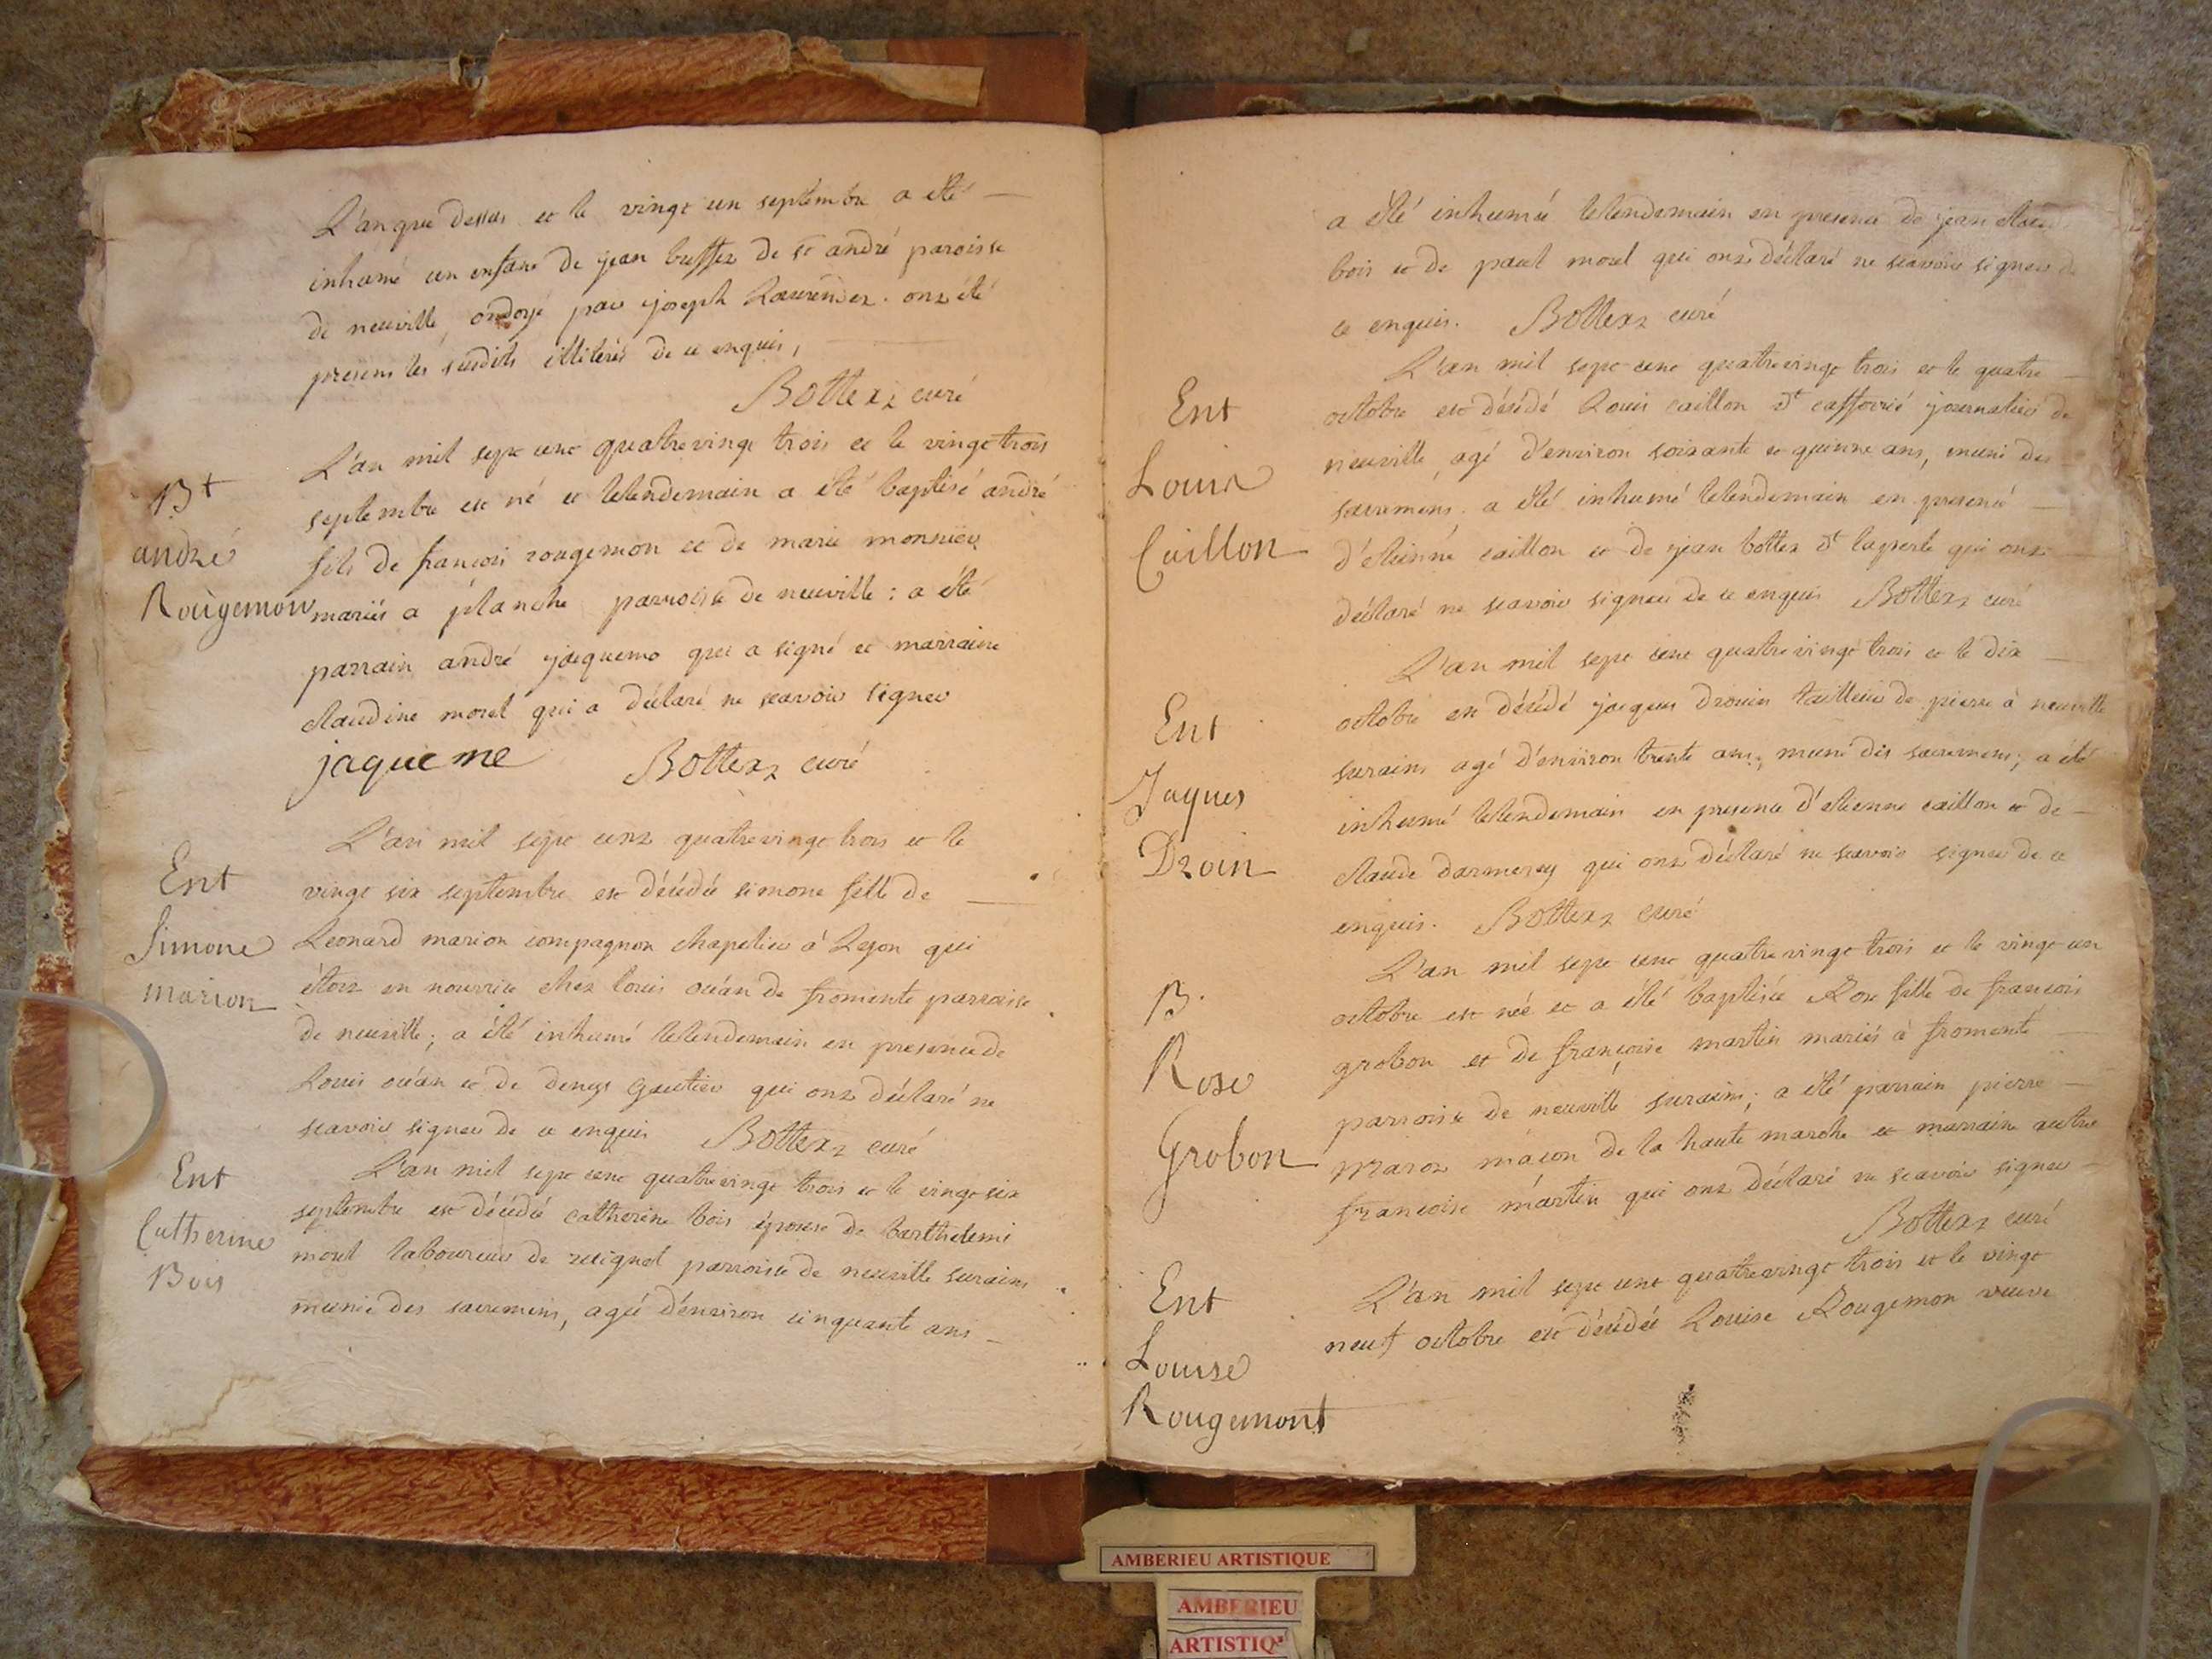 L'an que dessus et le vingt un septembre a été
inhumé un enfant de jean buffet de st andré paroisse
de neuville, ondoyé par joseph Laurender. ont été
presens les susdits illiterés de ce enquis,
Bottex curé
Bt
andré
Rougemon
L'an mil sept cent quatrevingt trois et le vingt trois
septembre est né et lelendemain a été baptisé andré
fils de françois rougemon et de marie monnier
mariés a planche parroisse de neuville : a été
parrain andré jaquemo qui a signé et marraine
claudine morel qui a déclaré ne scavoir signer
jaqueme Bottex curé
Ent
Simone
marion
L'an mil sept cent quatrevingt trois et le
vingt six septembre est décédée simone fille de
Leonard marion compagnon chapelier à Lyon qui
étoit en nourrice chez louis océan de fromente parroisse
de neuville; a été inhumé lelendemain en presence de
Louis océan et de denys gautier qui ont déclaré ne
scavoir signer de ce enquis Bottex curé
Ent
Catherine
Bois
L'an mil sept cent quatrevingt trois et le vingt six
septembre est décédée catherine bois épouse de barthelemi
morel laboureur de parroisse de neuville surains
munie des sacremens, agée d'environ cinquante ans
a été inhumée lelendemain en presence de jean
bois et de paul morel qui ont déclaré ne scavoir signer de
ce enquis. Bottex curé
Ent
Louis
Caillon
L'an mil sept cent quatrevingt trois et le quatre
octobre est décédé Louis caillon dt journalier de
neuville, agé d'environ soixante et quinze ans, muni des
sacremens. a été inhumé lelendemain en presence
d'etienne caillon et de jean bottex dt laperle qui ont
déclaré ne scavoir signer de ce enquis Bottex curé
Ent
Jaques
Droin
L'an mil sept cent quatrevingt trois et le dix
octobre est décédé jacques drouin tailleur de pierre à neuville
surains agé d'environ trente ans, muni des sacremens; a été
inhumé lelendemain en presence d'etienne caillon et de
claude darmerey qui ont déclaré ne scavoir signer de ce
enquis. Bottex curé
B.
Rose
Grobon
L'an mil sept cent quatrevingt trois et le vingt un
octobre est née et a été baptisée Rose fille de francois
grobon et de françoise martin mariés à fromente
parroisse de neuville surains; a été parrain pierre
maçon de la haute marche et marraine autre
francoise martin qui ont déclaré ne scavoir signer
Bottex curé
Ent
Louise
Rougemont
L'an mil sept cent quatrevingt trois et le vingt
neuf octobre est décédée Louise Rougemon veuve
AMBERIEU ARTISTIQUE
AMBERIEU
ARTISTIQ